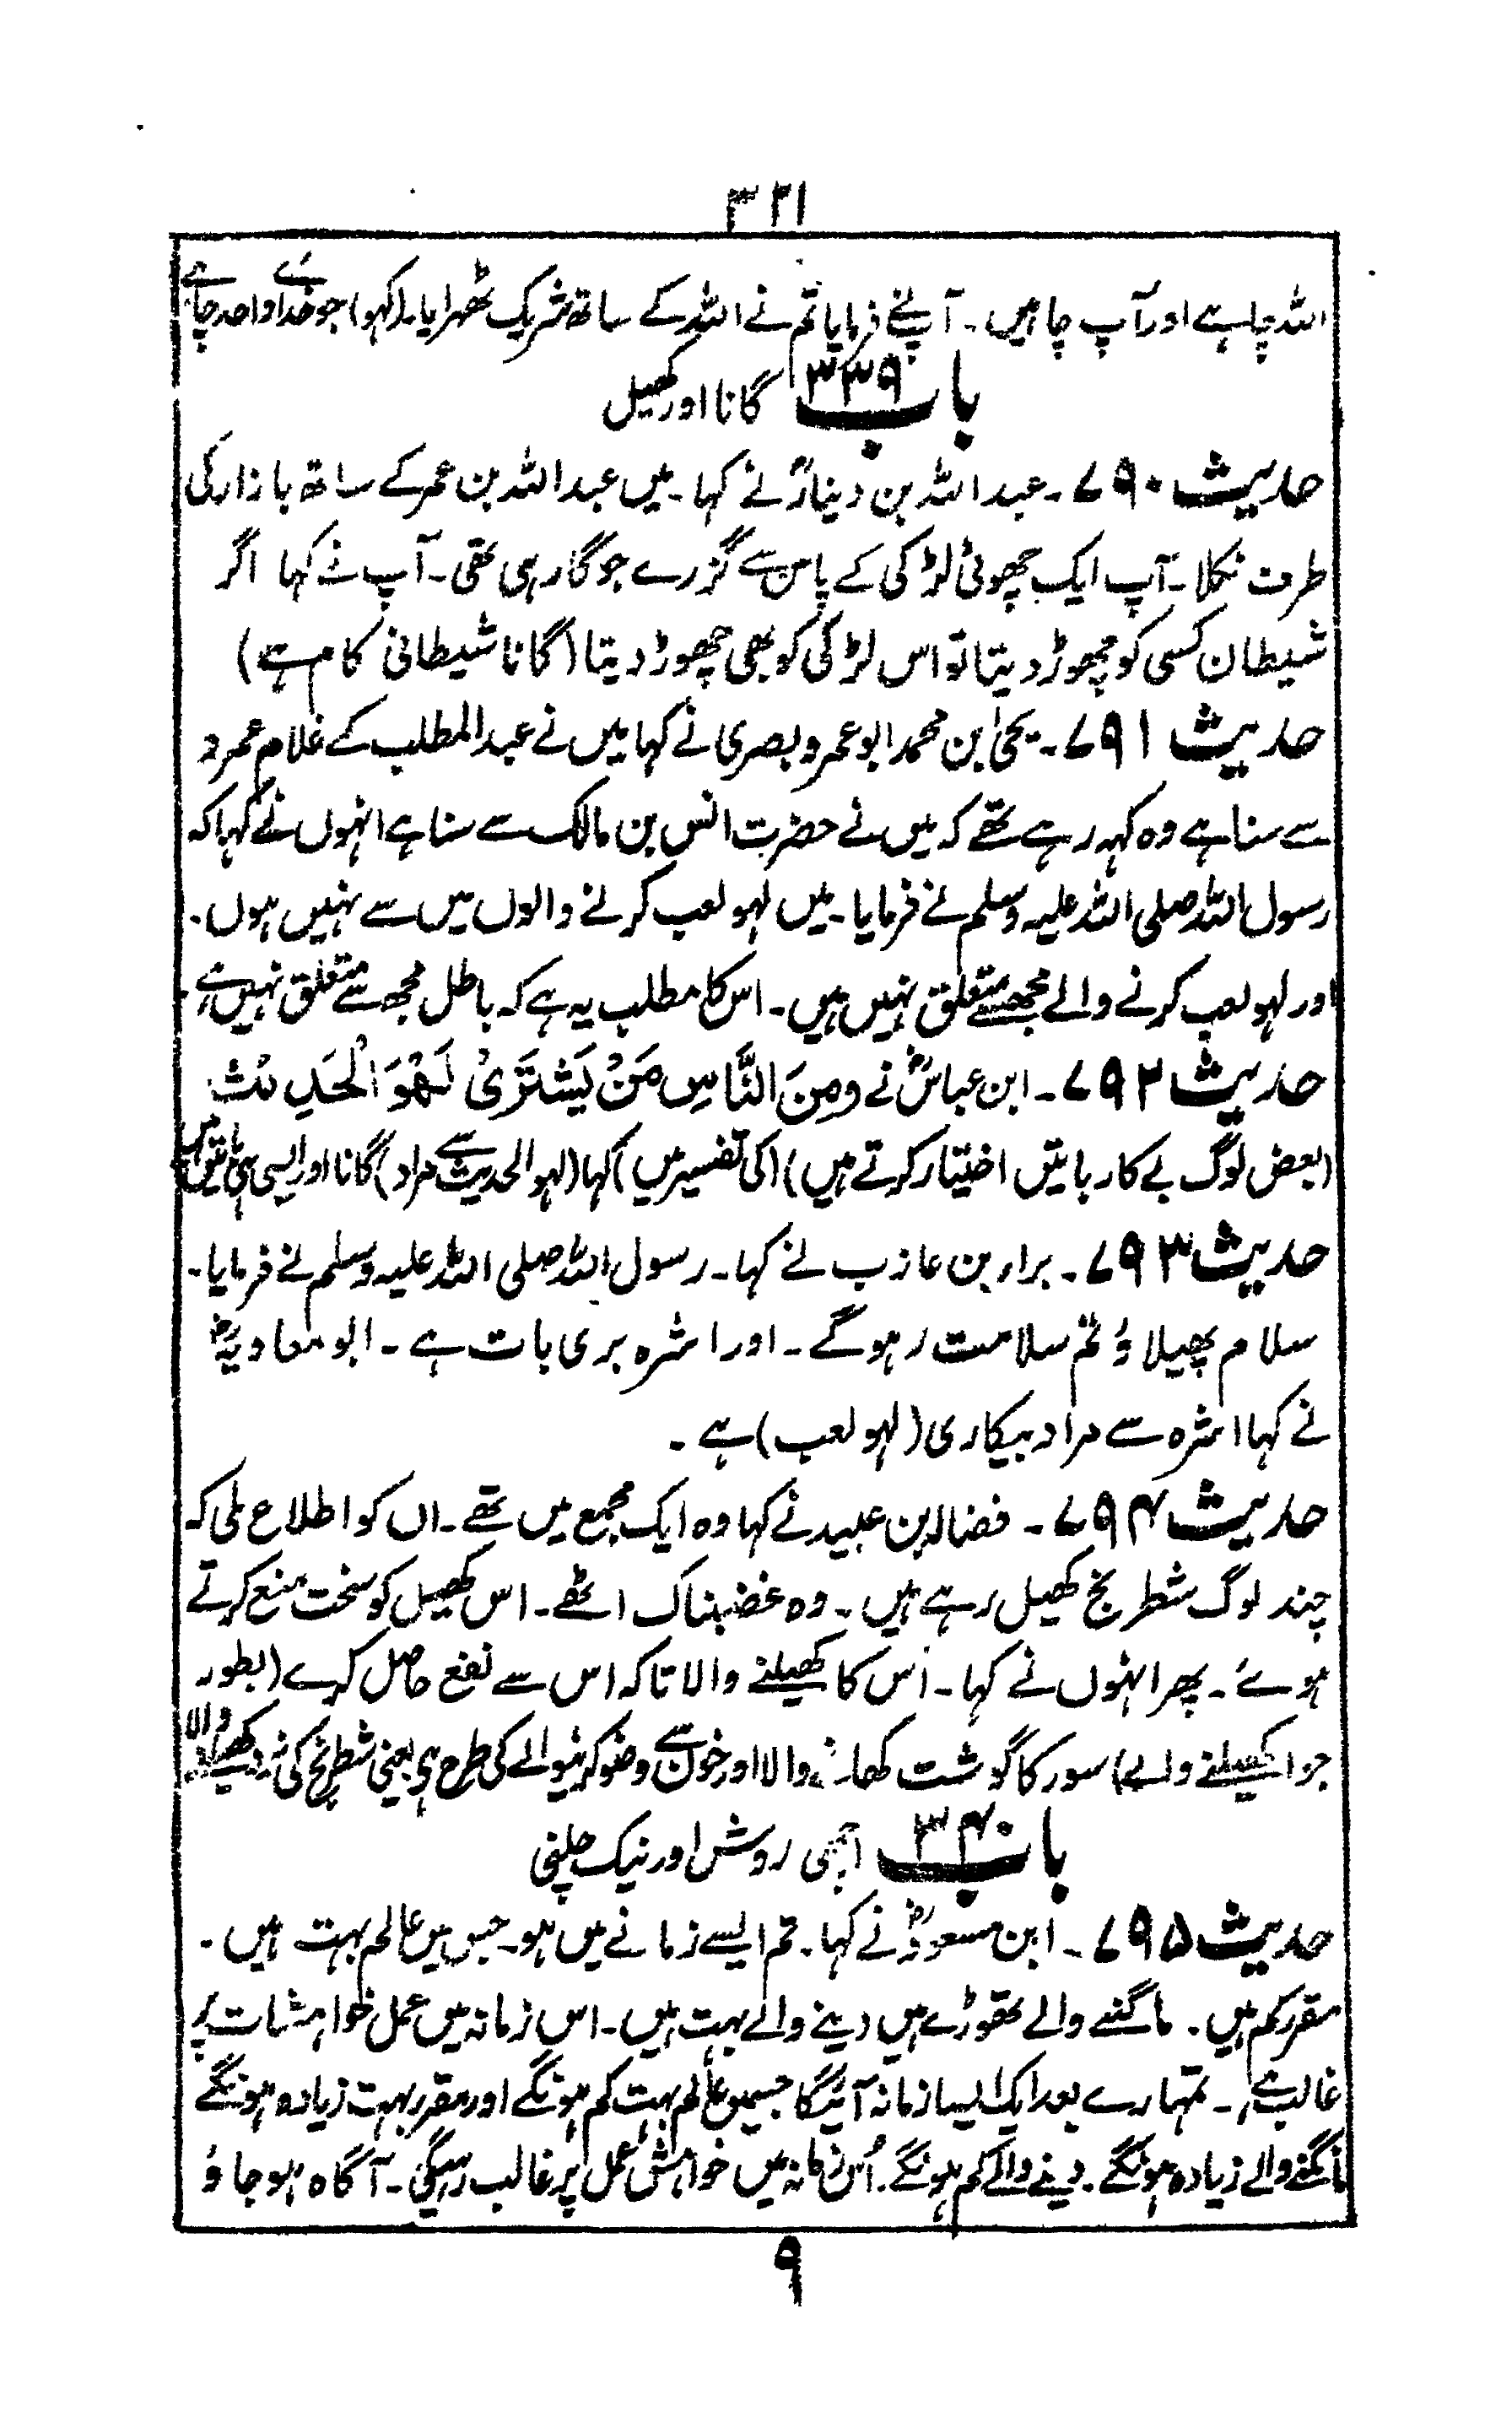 ۳۲۱
اللہ چاہے اور آپ چاہیں ۔ آپنے فرمایا تم نے اللہ کے ساتھ شریک ٹھہرایا۔ (کہو) جو خدائے واحد چاہے
باب ۳۳۹ گانا اور کھیل
حدیث ۷۹۰ ۔ عبداللہ بن دینارؒ نے کہا ۔ میں عبداللہ بن عمر کے ساتھ بازار کی
طرف نکلا ۔ آپ ایک چھوٹی لڑکی کے پاس سے گزرے جو گا رہی تھی ۔ آپ نے کہا اگر
شیطان کسی کو چھوڑ دیتا تو اس لڑکی کو بھی چھوڑ دیتا (گانا شیطانی کام ہے)
حدیث ۷۹۱ ۔ یحییٰ ابن محمد ابو عمرو بصری نے کہا میں نے عبدالمطلب کے غلام عمرو
سے سنا ہے وہ کہہ رہے تھے کہ میں نے حضرت انس بن مالک سے سنا ہے انہوں نے کہا کہ
رسول اللہ صلی اللہ علیہ وسلم نے فرمایا ۔ میں لہو لعب کرنے والوں میں سے نہیں ہوں ۔
اور لہو لعب کرنے والے مجھسے متعلق نہیں ہیں ۔ اس کا مطلب یہ ہے کہ باطل مجھ سے متعلق نہیں ہے
حدیث ۷۹۲ ۔ ابن عباسؓ نے وَمِنَ النَّاسِ مَنْ يَشْتَرِىْ لَهْوَ الْحَدِيْث
(بعض لوگ بے کار باتیں اختیار کرتے ہیں) (کی تفسیر میں) کہا (لہو الحدیث سے مراد) گانا اور ایسی ہی باتیں ہیں
حدیث ۷۹۳ ۔ براء بن عازب نے کہا ۔ رسول اللہ صلی اللہ علیہ وسلم نے فرمایا ۔
سلام پھیلاؤ تم سلامت رہو گے ۔ اور اشرہ بری بات ہے ۔ ابو معاویہؓ
نے کہا اشرہ سے مراد بیکاری (لہو لعب) ہے ۔
حدیث ۷۹۴ ۔ فضالہ بن عبید نے کہا وہ ایک مجمع میں تھے ۔ ان کو اطلاع ملی کہ
چند لوگ شطرنج کھیل رہے ہیں ۔ وہ غضبناک اٹھے ۔ اس کھیل کو سخت منع کرتے
ہوئے ۔ پھر انہوں نے کہا ۔ اس کا کھیلنے والا تاکہ اس سے نفع حاصل کرے (بطور
جوا کھیلنے والے) سور کا گوشت کھانے والا اور خون سے وضو کرنیوالے کی طرح ہی یعنی شطرنج کی نرد کھیلنے والا
باب ۳۴۰ اچھی روش اور نیک چلنی
حدیث ۷۹۵ ۔ ابن مسعودؓ نے کہا ۔ تم ایسے زمانے میں ہو۔ جس میں عالم بہت ہیں ۔
مقرر کم ہیں ۔ مانگنے والے تھوڑے ہیں دینے والے بہت ہیں ۔ اس زمانہ میں عمل خواہشات پر
غالب ہے ۔ تمہارے بعد ایک ایسا زمانہ آئیگا جسمیں عالم بہت کم ہونگے اور مقرر بہت زیادہ ہونگے
مانگنے والے زیادہ ہونگے ۔ دینے والے کم ہونگے ۔ اُس زمانہ میں خواہش عمل پر غالب رہیگی ۔ آگاہ ہو جاؤ
۹